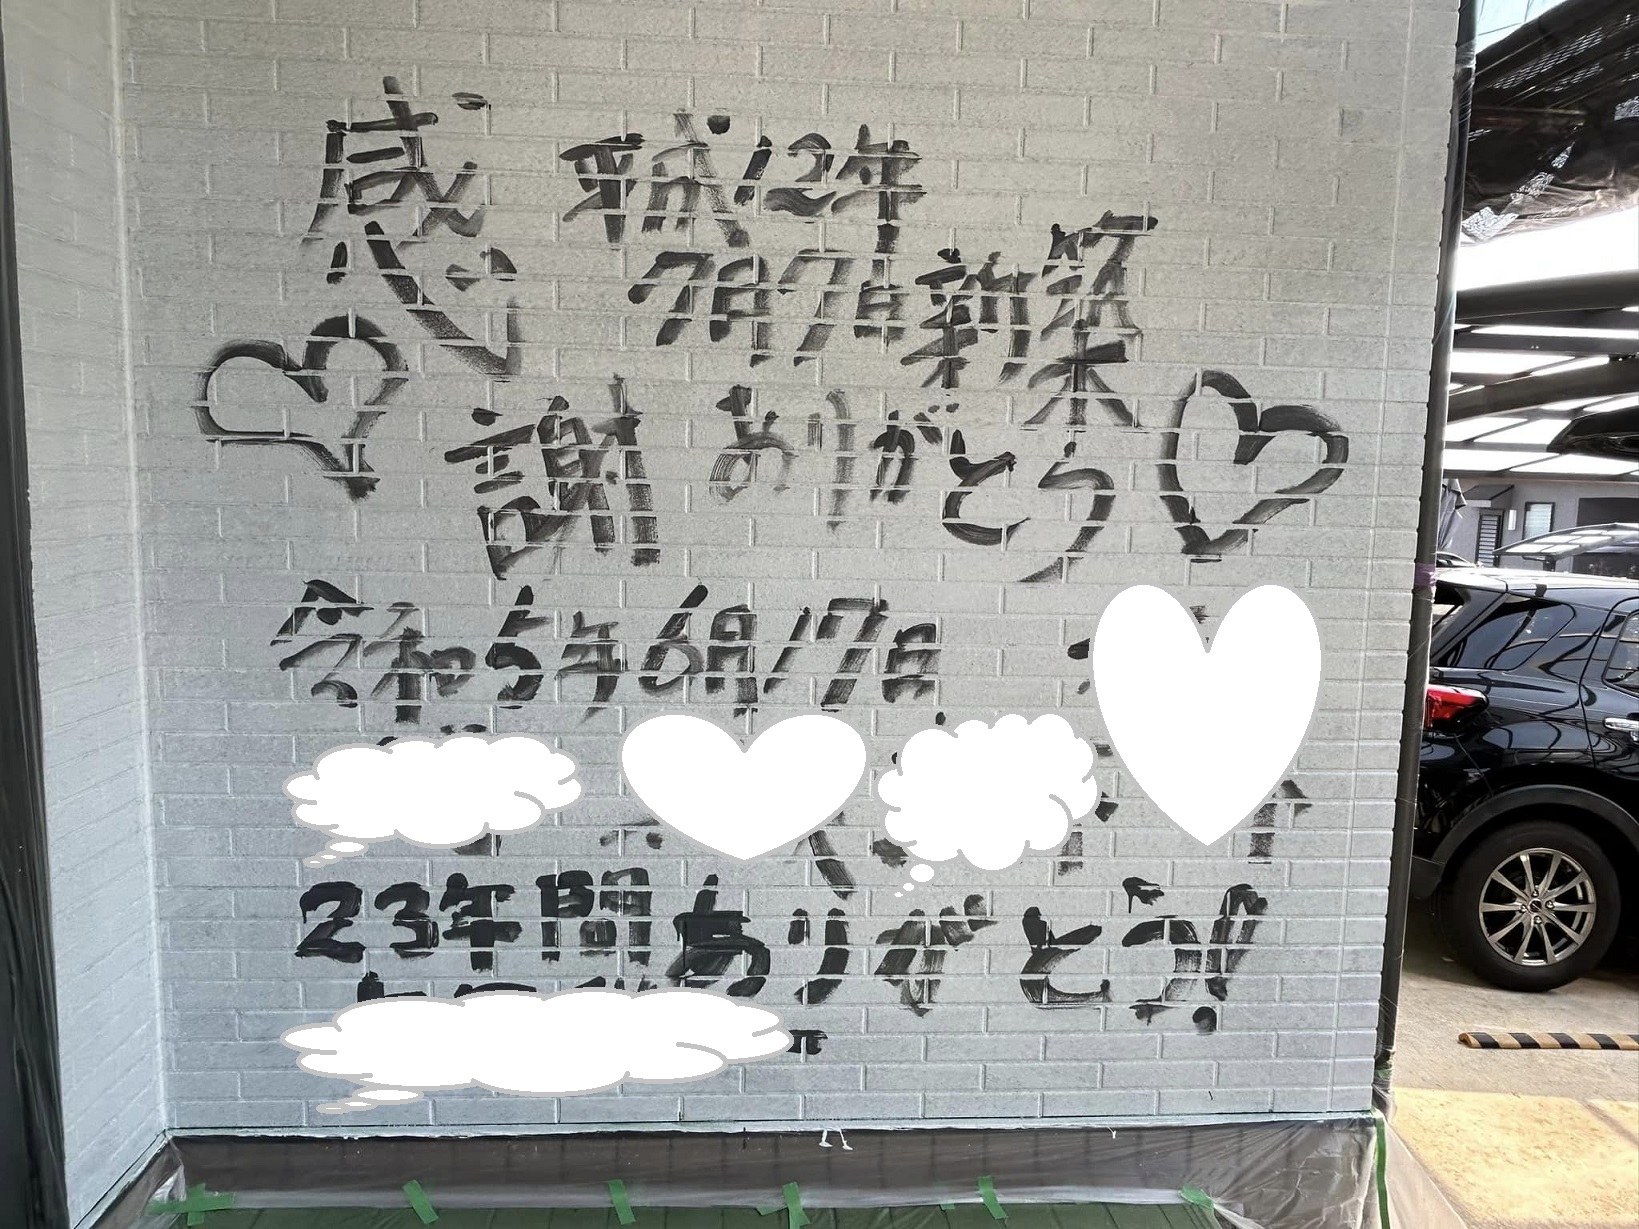 感謝
平成12年
7月7日新築
ありがとう
令和5年6月17日
23年間ありがとう!!